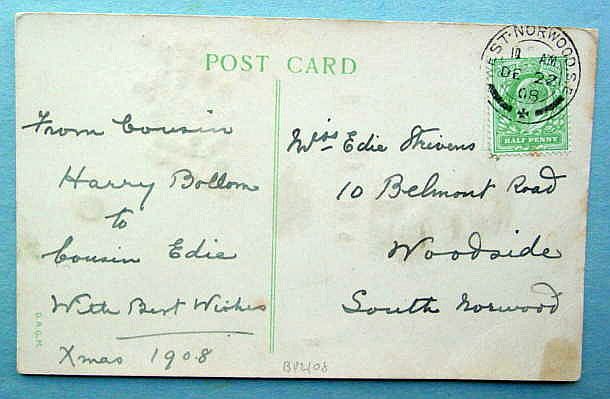 POST CARD
WEST·NORWOOD S.E
10 AM
DE 22
08
HALF PENNY
From Cousin
Harry Bollom
to
Cousin Edie
With Best Wishes
Xmas 1908
Miss Edie Strivens
10 Belmont Road
Woodside
South Norwood
D.A.G.M.
BP2108